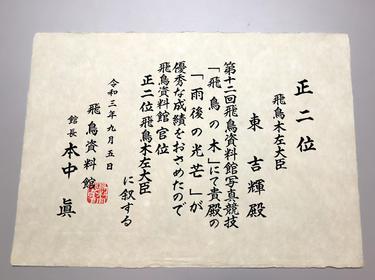 正二位
飛鳥木左大臣
東吉輝殿
第十二回飛鳥資料館写真競技
「飛鳥の木」にて貴殿の
「雨後の光芒」が
優秀な成績をおさめたので
飛鳥資料館官位
正二位飛鳥木左大臣
に叙する
令和三年九月五日
飛鳥資料館
館長 本中眞